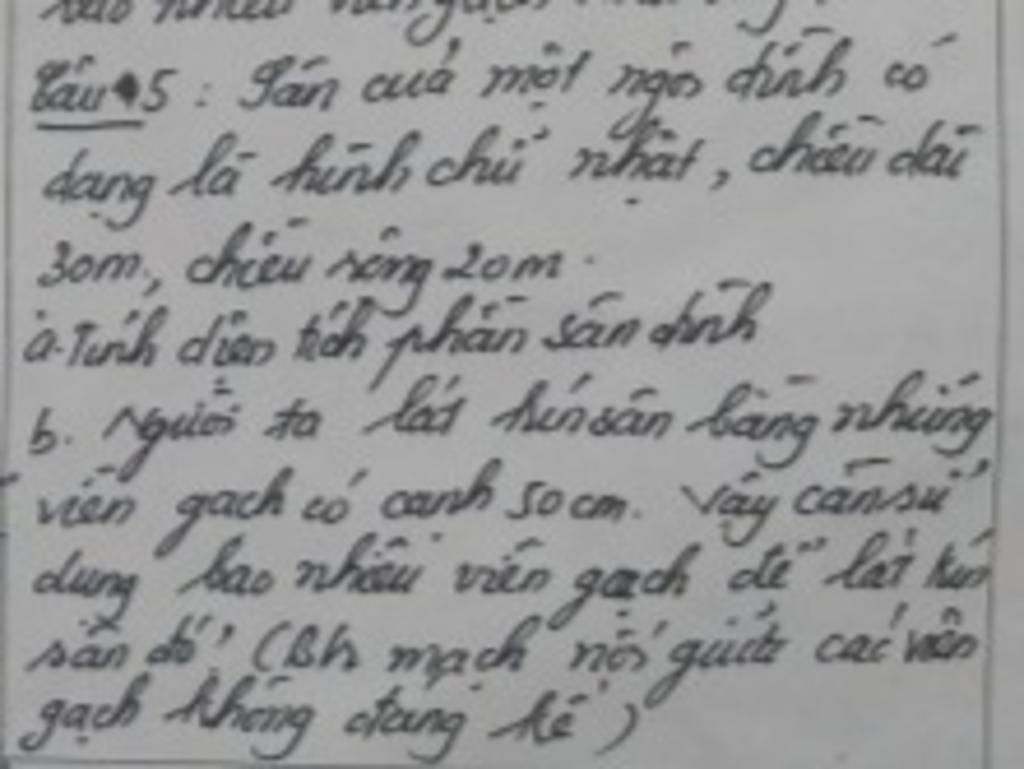 bao nhiêu viên gạch
Câu 5 : Sân của một ngôi đình có
dạng là hình chữ nhật, chiều dài
30m, chiều rộng 20m.
a. Tính diện tích phần sân đình
b. Người ta lát kín sân bằng những
viên gạch có cạnh 50 cm. Vậy cần sử
dụng bao nhiêu viên gạch để lát kín
sân đó? (Biết mạch nối giữa các viên
gạch không đáng kể)